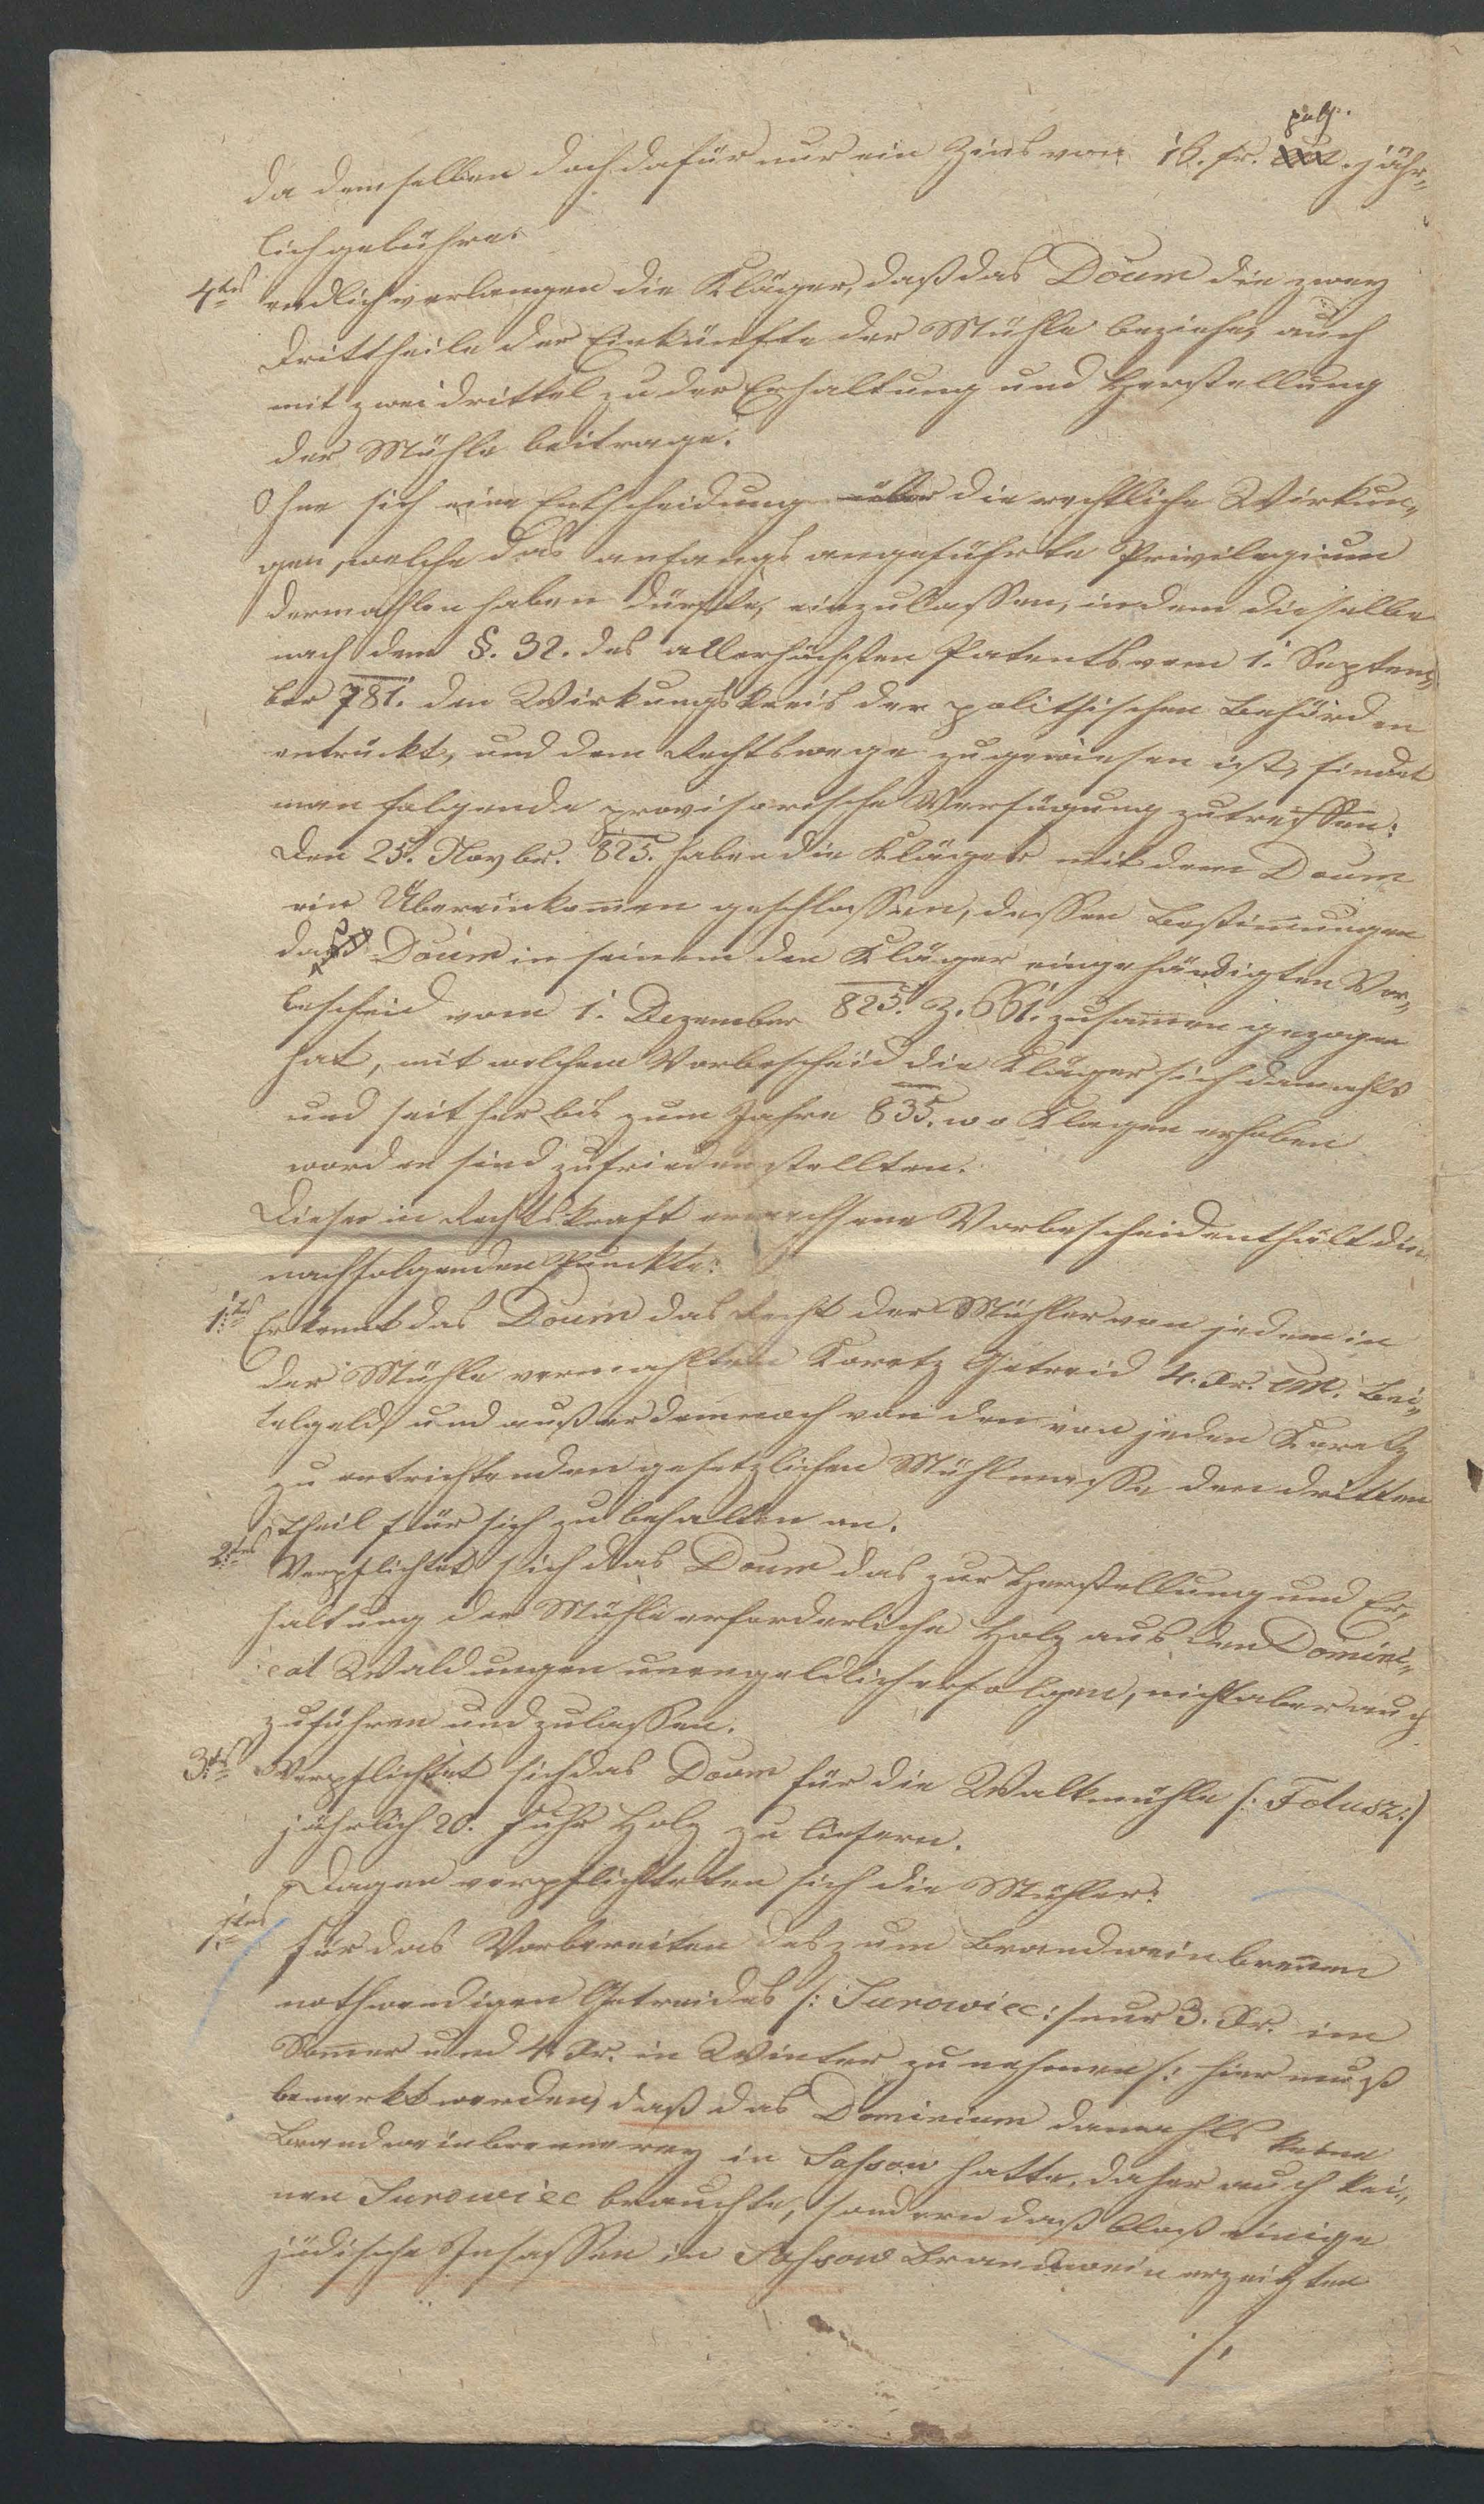 da demselben doch dafür nur ein Zins von 16. fr. poln. jähr„
lich gebühre.
4tens endlich verlangen die Kläger, daß das Doum die zwey
Drittheile der Einkünfte der Mühle beziehe, auch
mit zwei drittel zu der Erhaltung und Herstellung
der Mühle beitrage.
Ohne sich eine Entscheidung über die rechtliche Wirkun„
gen, welche das anfangs angeführte Privilegium
dermahlen haben dürfte, einzulassen, indem dieselbe
nach dem §. 32. des allerhöchsten Patents vom 1. Septem„
ber 781. den Wirkungskreis der politischen Behörden
entrückt, und dem Rechtswege zugewiesen ist, findet
man folgende provisorische Verfügung zu treffen:
Den 25. Novbr. 825. haben die Kläger mit dem Doum
ein Übereinkommen geschlossen, dessen Bestimmungen
das Doum in seinem den Kläger eingehändigten Vor„
bescheid vom 1. Dezember 825. Z. 661. zusammen gezogen
hat, mit welchem Vorbescheid die Kläger sich damahls
und seither bis zum Jahre 835. wo Klagen erhoben
worden sind zufrieden stellten.
Dieser in Rechtskraft erwachsene Vorbescheid enthält die
nachfolgenden Punckte:
1tens Erkennt das Doum das Recht der Mühler von jedem in
der Mühle vermahlten Koretz Getreid 4. Xr. CM. Bei„
telgeld, und außerdem noch von den von jeden Koretz
zu entrichtenden gesetzlichen Mühlmasse den dritten
Theil für sich zu behalten an.
2tens Verpflichtet sich das Doum das zur Herstellung und Er„
haltung der Mühle erforderliche Holz aus den Domini„
cal Waldungen unengeldlich erfolgen, nicht aber auch
zuführen und zulassen.
3tens Verpflichtet sich das Doum für die Walkmühle /: Folusz :/
jährlich 20. Fuhr Holz zu liefern.
Dagen verpflichteten sich die Mühler:
1tens Für das Vorbereiten des zum Brandweinbrennen
nothwendigen Getreides /: Surowiec :/ nur 3. Xr. im
Sommer und 4 Xr. in Winter zu nehmen /: hier muß
bemerkt werden, daß das Dominium damahls keine
Brandweinbrennerey in Sassow hatte, daher auch kei„
nen Surowiec brauchte, sondern daß bloß einige
jüdische Insassen in Sassow Brandwein erzeigten
./.